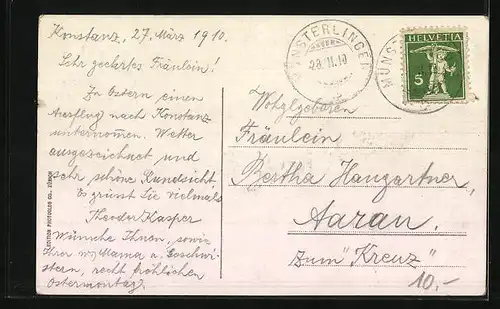 Konstanz, 27. März 1910.
Sehr geehrtes Fräulein!
Zu Ostern einen
Ausflug nach Konstanz
unternommen. Wetter
ausgezeichnet und
sehr schöne Rundsicht.
Es grüsst Sie vielmals
Theodor Kasper
Wünsche Ihnen, sowie
Ihrer Mama u. Geschwi-
stern, recht fröhlichen
Ostermontag.
EDITION PHOTOGLOB CO., ZÜRICH
MÜNSTERLINGEN
28.III.10
MÜNS
HELVETIA
5
Wohlgeboren
Fräulein
Bertha Hangartner,
Aarau.
zum "Kreuz"
10.-